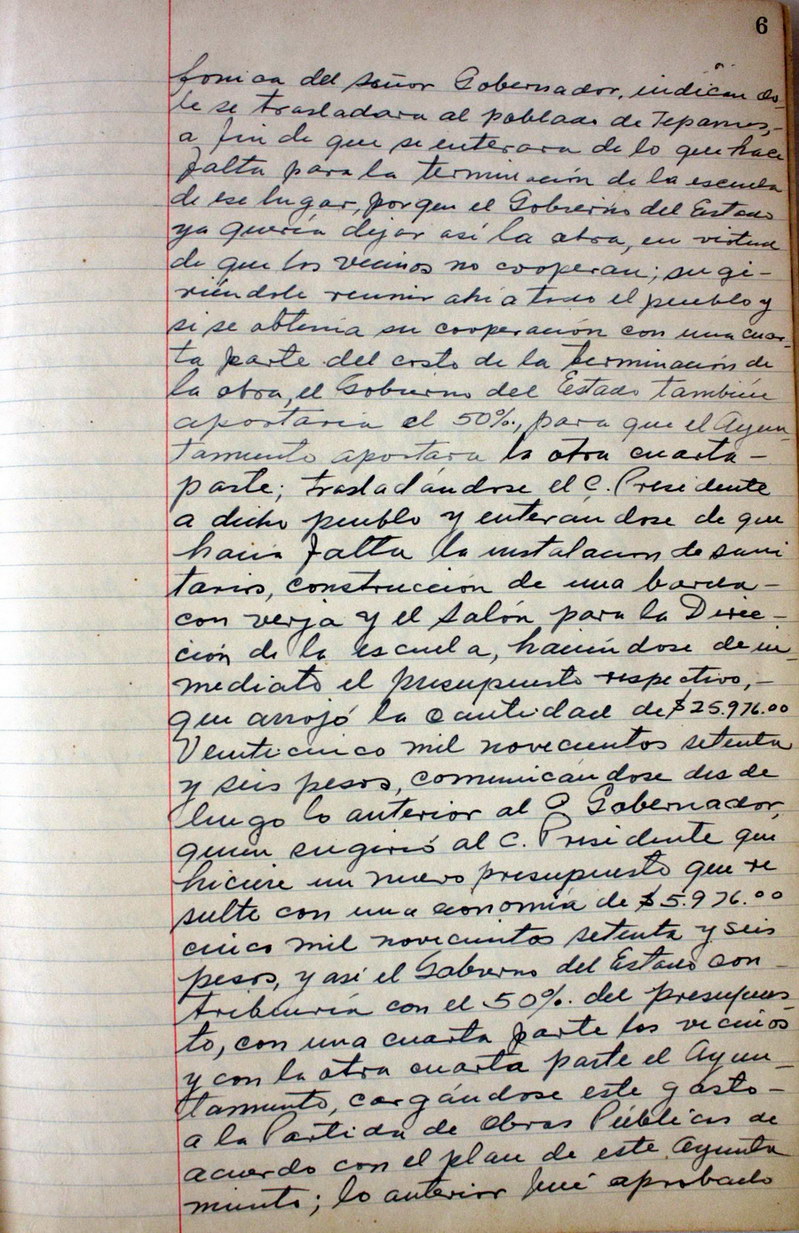 6
fonica del señor Gobernador, indicando-
le se trasladara al poblado de Tepames,-
a fin de que se enterara de lo que hace
falta para la terminación de la escuela
de ese lugar, porque el Gobierno del Estado
ya quería dejar así la obra, en virtud
de que los vecinos no cooperan; sugi-
riéndole reunir ahí a todo el pueblo y
si se obtenia su cooperación con una cuar-
ta parte del costo de la terminación de
la obra, el Gobierno del Estado también
aportaria el 50%, para que el Ayun-
tamiento aportara la otra cuarta-
parte; trasladándose el C. Presidente
a dicho pueblo y enterándose de que
hacia falta la instalacion de sani
tarios, construcción de una barda-
con verja y el salón para la Direc-
ción de la escuela, haciéndose de in-
mediato el presupuesto respectivo,-
que arrojó la cantidad de $25.976.00
Veinticinco mil novecientos setenta
y seis pesos, comunicándose desde
luego lo anterior al C. Gobernador,
quien sugirió al C. Presidente que
hiciese un nuevo presupuesto que re
sulte con una economía de $5.976.00
cinco mil novecientos setenta y seis
pesos, y así el Gobierno del Estado con-
tribuiría con el 50%. del presupues-
to, con una cuarta parte los vecinos
y con la otra cuarta parte el Ayun-
tamiento, cargándose este gasto-
a la Partida de Obras Públicas de
acuerdo con el plan de este Ayunta
miento; lo anterior fué aprobado